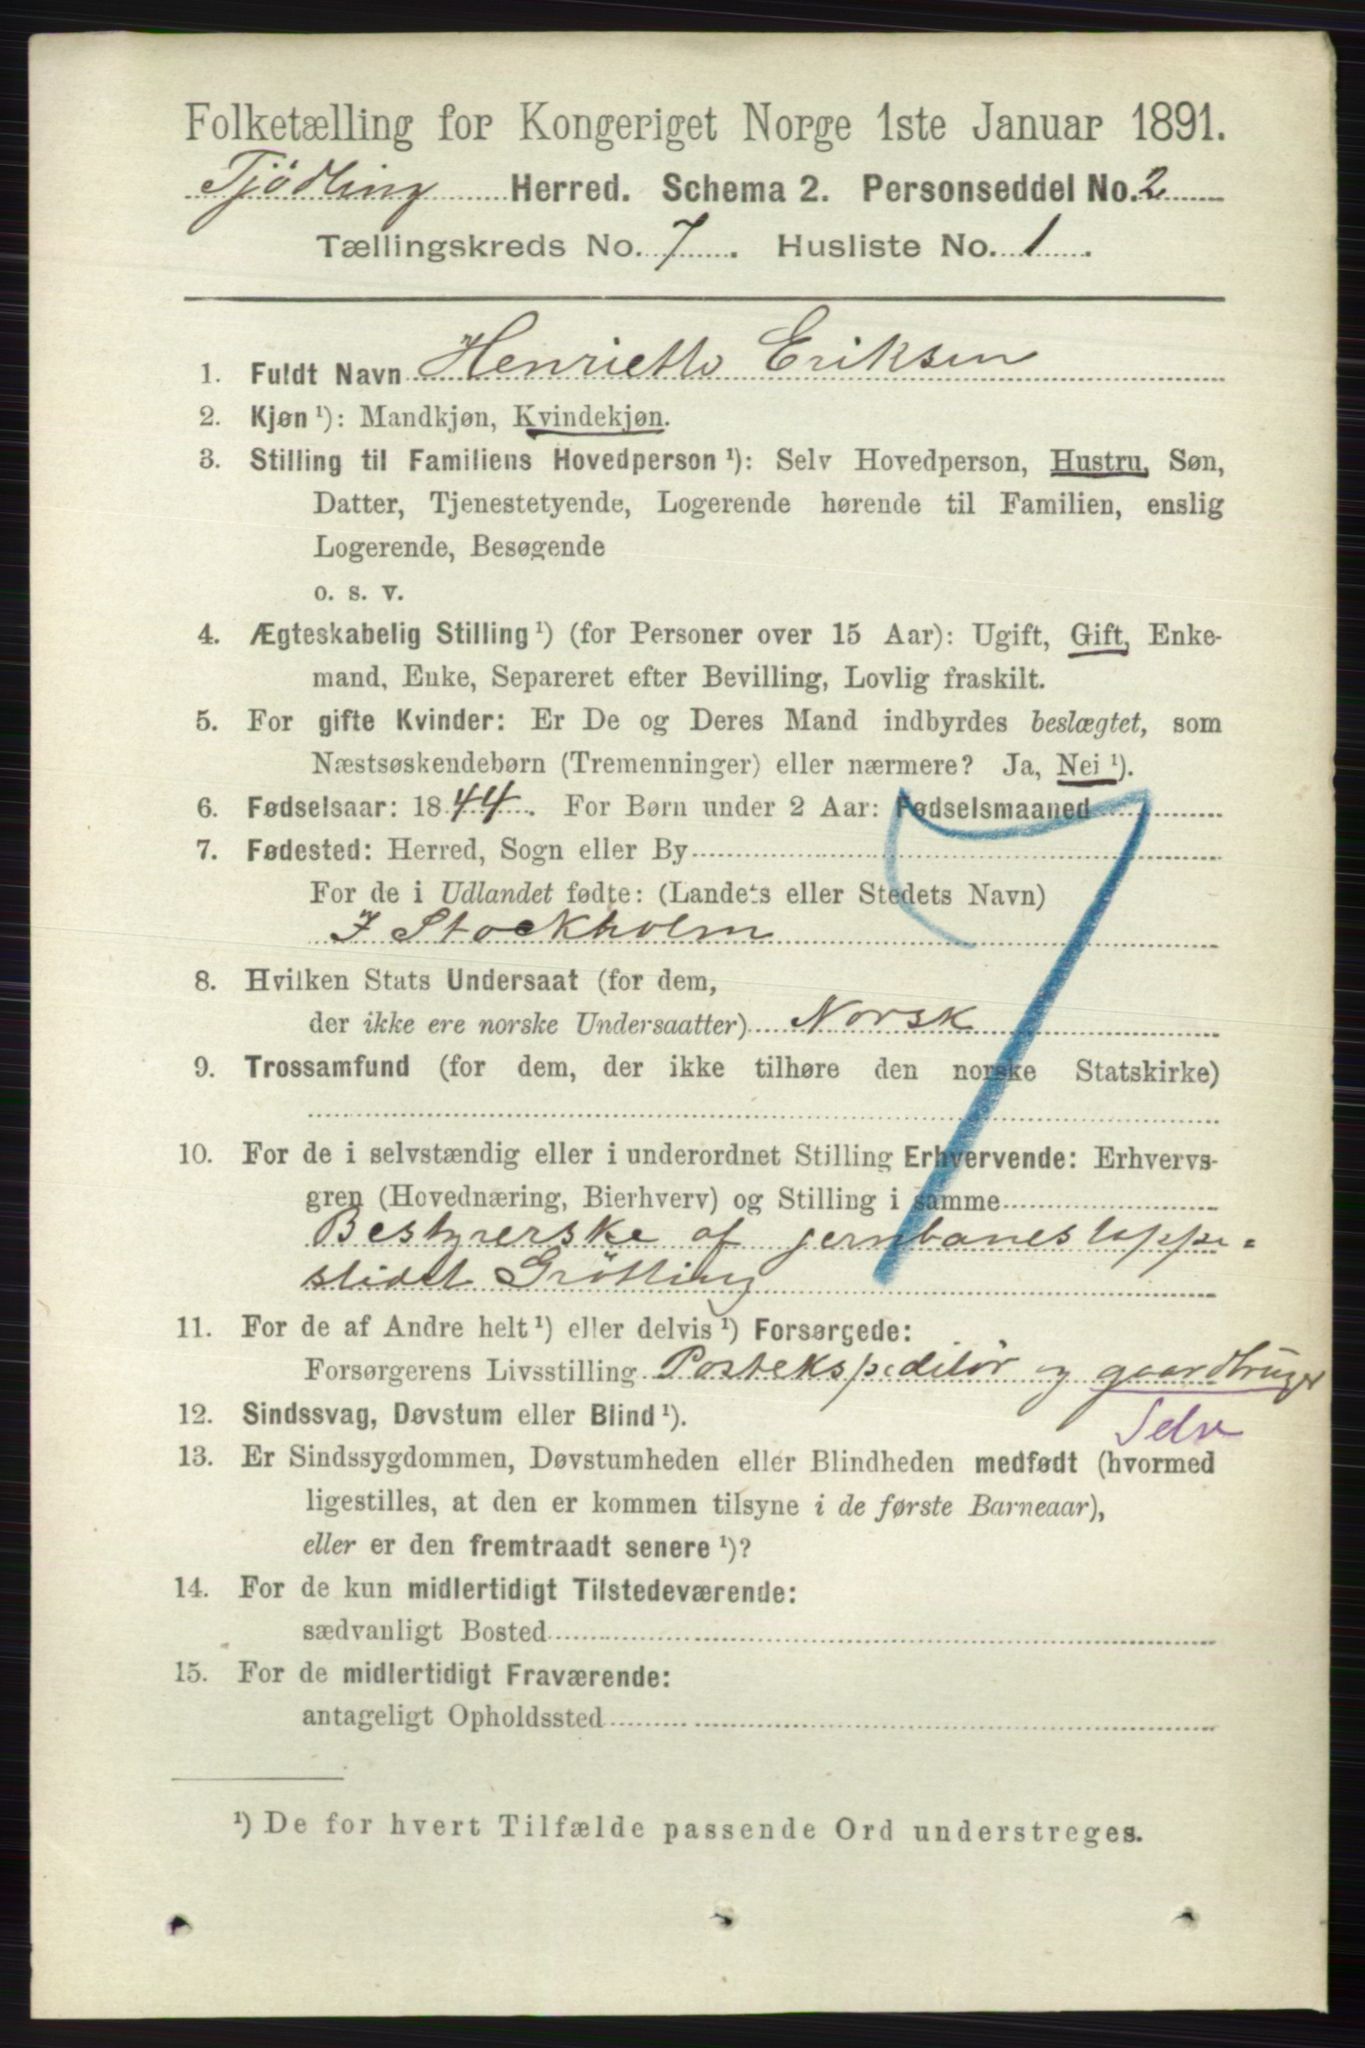 Folketælling for Kongeriget Norge 1ste Januar 1891.
Tjödling Herred. Schema 2. Personseddel No. 2
Tællingskreds No. 7. Husliste No. 1.
1. Fuldt Navn Henriette Eriksen
2. Kjøn ¹): Mandkjøn, Kvindekjøn.
3. Stilling til Familiens Hovedperson ¹): Selv Hovedperson, Hustru, Søn,
Datter, Tjenestetyende, Logerende hørende til Familien, enslig
Logerende, Besøgende
o. s. v.
4. Ægteskabelig Stilling ¹) (for Personer over 15 Aar): Ugift, Gift, Enke-
mand, Enke, Separeret efter Bevilling, Lovlig fraskilt.
5. For gifte Kvinder: Er De og Deres Mand indbyrdes beslægtet, som
Næstsøskendebørn (Tremenninger) eller nærmere? Ja, Nei ¹).
6. Fødselsaar: 1844. For Børn under 2 Aar: Fødselsmaaned
7. Fødested: Herred, Sogn eller By
For de i Udlandet fødte: (Landets eller Stedets Navn)
I Stockholm
8. Hvilken Stats Undersaat (for dem,
der ikke ere norske Undersaatter) Norsk
9. Trossamfund (for dem, der ikke tilhøre den norske Statskirke)
10. For de i selvstændig eller i underordnet Stilling Erhvervende: Erhvervs-
gren (Hovednæring, Bierhverv) og Stilling i samme
Bestyrerske af jernbanestoppe-
stidet Grötting
11. For de af Andre helt ¹) eller delvis ¹) Forsørgede:
Forsørgerens Livsstilling Postekspeditör og gaardbruger
Selv
12. Sindssvag, Døvstum eller Blind ¹).
13. Er Sindssygdommen, Døvstumheden eller Blindheden medfødt (hvormed
ligestilles, at den er kommen tilsyne i de første Barneaar),
eller er den fremtraadt senere ¹)?
14. For de kun midlertidigt Tilstedeværende:
sædvanligt Bosted
15. For de midlertidigt Fraværende:
antageligt Opholdssted
¹) De for hvert Tilfælde passende Ord understreges.
7